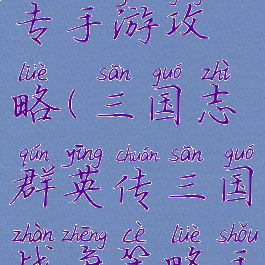 专手游攻
lüè sān guó zhì
略(三国志
qún yīng chuán sān guó
群英传三国
zhàn zhēng cè lüè shǒu
战争策略手